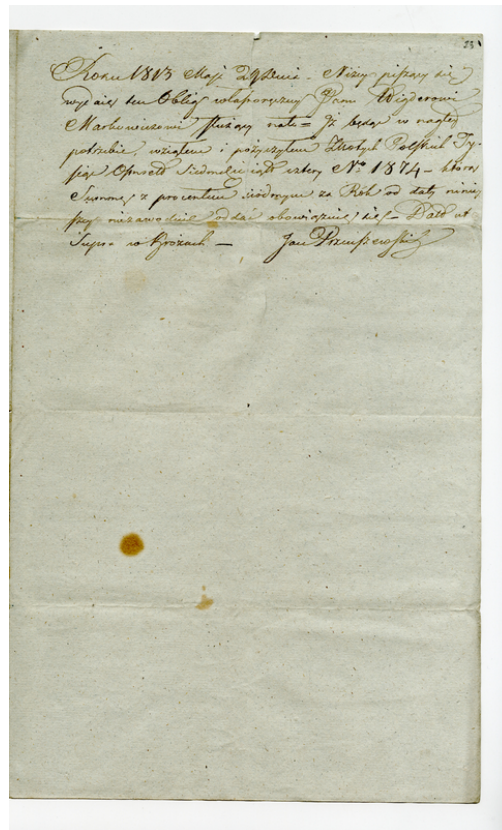 23
Roku 1813 Maja 29 Dnia. Niżey piszący się
wydaię ten Oblig własnoręczny Panu
Markowiczowi służący na to = Iż będąc w nagłey
potrzebie, wziąłem i pożyczyłem Złotych Polskich Ty-
siąc Ośmset Siedmdziesiąt cztery No 1874 — którą
Summę z procentem siódmym za Rok od daty ninie
szey niezawodnie oddać obowiązuię się — Datt ut
Supra w Krożach — Jan Przeciszewski